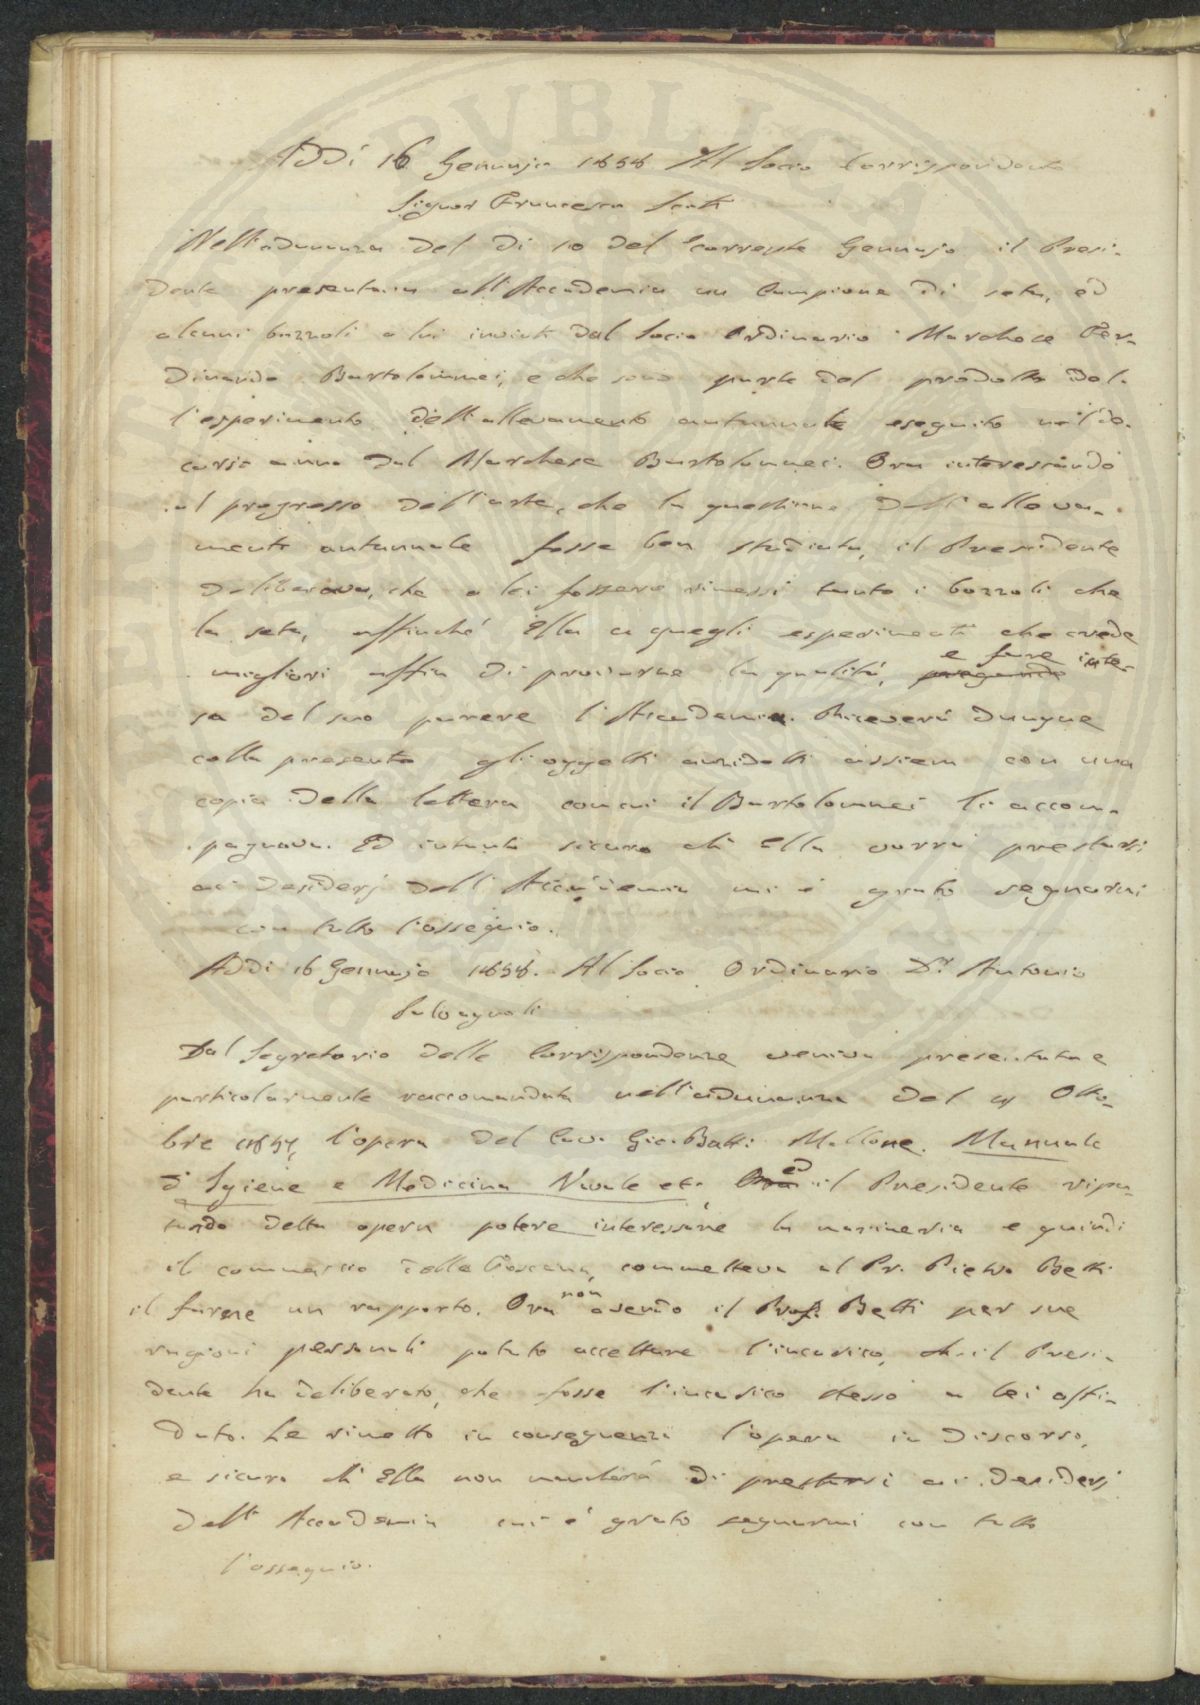 Addì 16 Gennajo 1858 Al Socio Corrispondente
Signor Francesco Scoti
Nell'adunanza del dì 10 del corrente Gennajo il Presi-
dente presentava all'Accademia un Campione di seta, ed
alcuni bozzoli a lui inviati dal Socio Ordinario Marchese Fer-
dinando Bartolommei, e che sono parte del prodotto del-
l'esperimento dell'allevamento autunnale eseguito nel de-
corso anno dal Marchese Bartolommei. Ora interessando
al progresso dell'arte, che la questione dell'alleva-
mento autunnale fosse ben studiata, il Presidente
deliberava, che a lei fossero rimessi tanto i bozzoli che
la seta, affinché Ella quegli esperimenti che crede
migliori affin di provarne la qualità, pregando e fare inte-
sa del suo parere l'Accademia. Riceverà dunque
colla presente gli oggetti anzidetti assiem con una
copia della lettera con cui il Bartolommei li accom-
pagnava. Ed intanto sicuro ch'Ella vorrà prestarsi
ai desiderj dell'Accademia mi è grato segnarmi
con tutto l'ossequio.
Addì 16 Gennajo 1858. Al Socio Ordinario Dr. Antonio
Salvagnoli
Dal Segretario delle Corrispondenze veniva presentata e
particolarmente raccomandata nell'adunanza del Otto-
bre 1857, l'opera del Cav. Gio. Batti Mallone. Manuale
d'Igiene e Medicina Navale etc, Ora ed il Presidente ripu-
tando detta opera potere interessare la marineria e quindi
il commercio della Toscana, commetteva al Pr. Pietro Betti
il farene un rapporto. Ora non avendo il Prof. Betti per sue
ragioni personali potuto accettare l'incarico, il Presi-
dente ha deliberato, che fosse l'incarico stesso a lei affi-
dato. Le rimetto in conseguenza l'opera in discorso,
e sicuro ch'Ella non mancherà di prestarsi ai desiderj
dell'Accademia mi è grato segnarmi con tutto
l'ossequio.